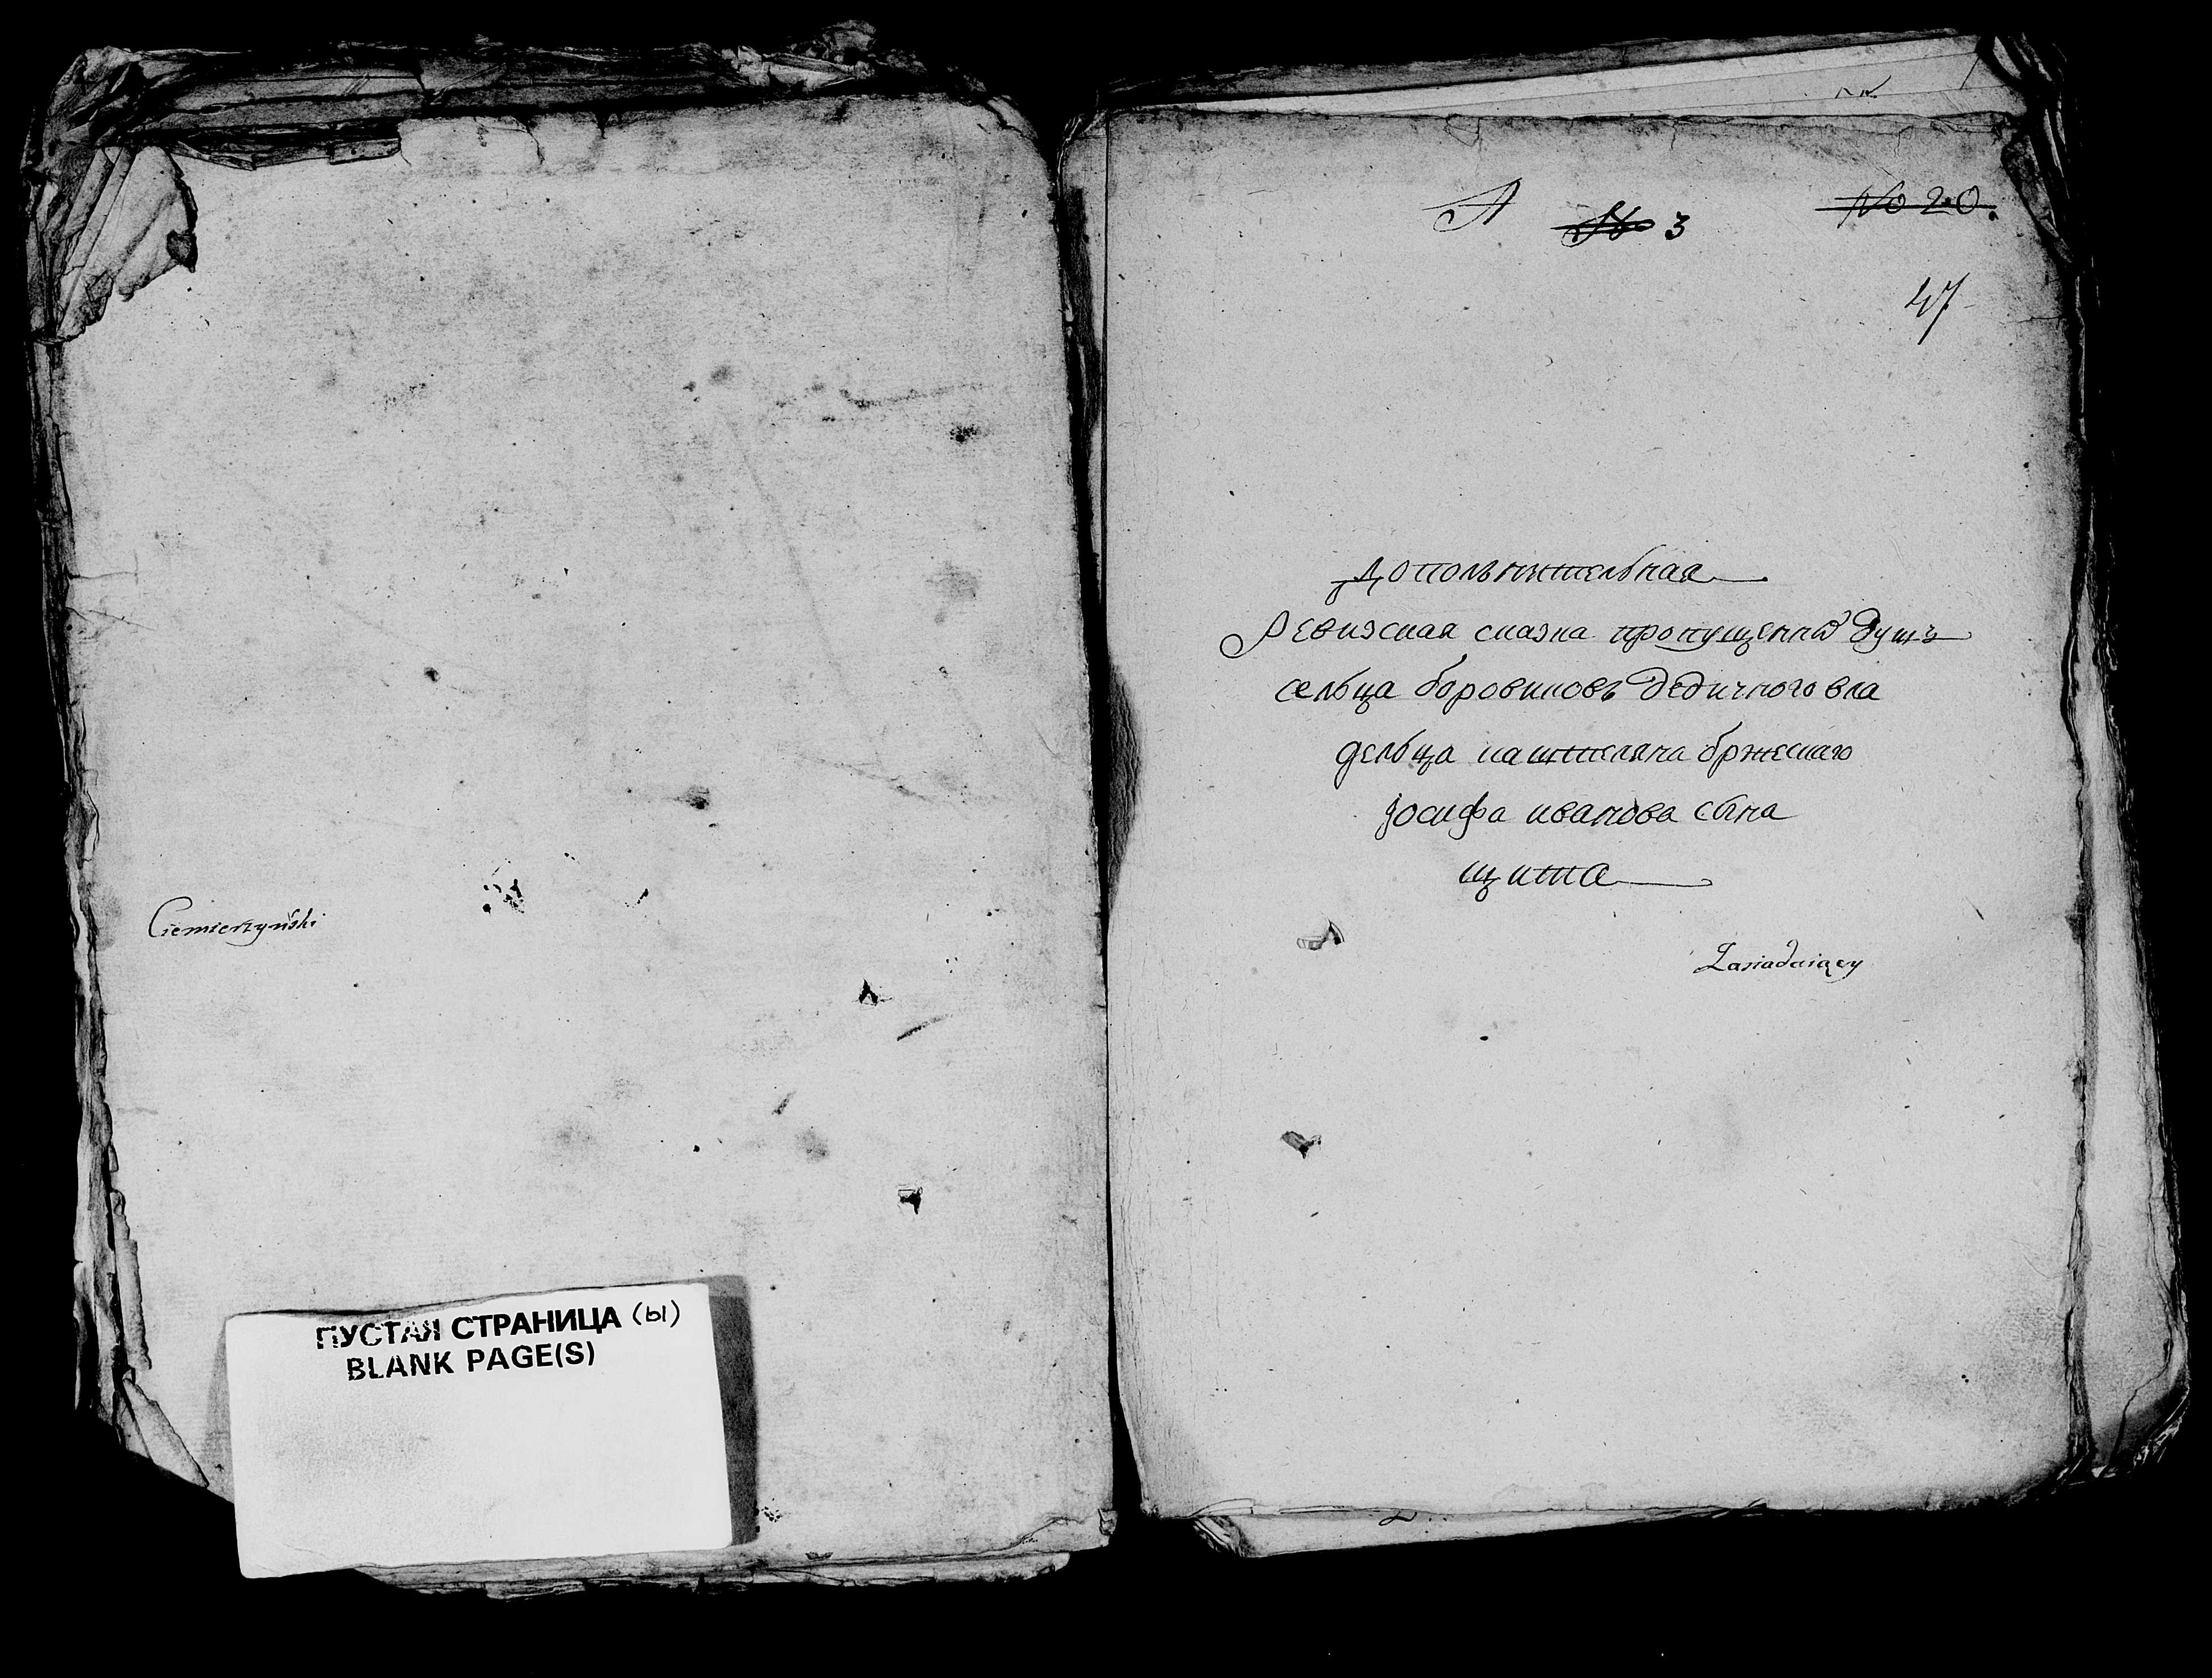 Ciemierzyński
ПУСТАЯ СТРАНИЦА (ы)
BLANK PAGE(S)
А № 3
No 20.
47
Дополънителная
Ревизская сказка пропущенны душъ
сельца боровиковъ дедичного вла
дельца каштеляна бржеского
Іосифа иванова сына
щита
Zasiadaiący